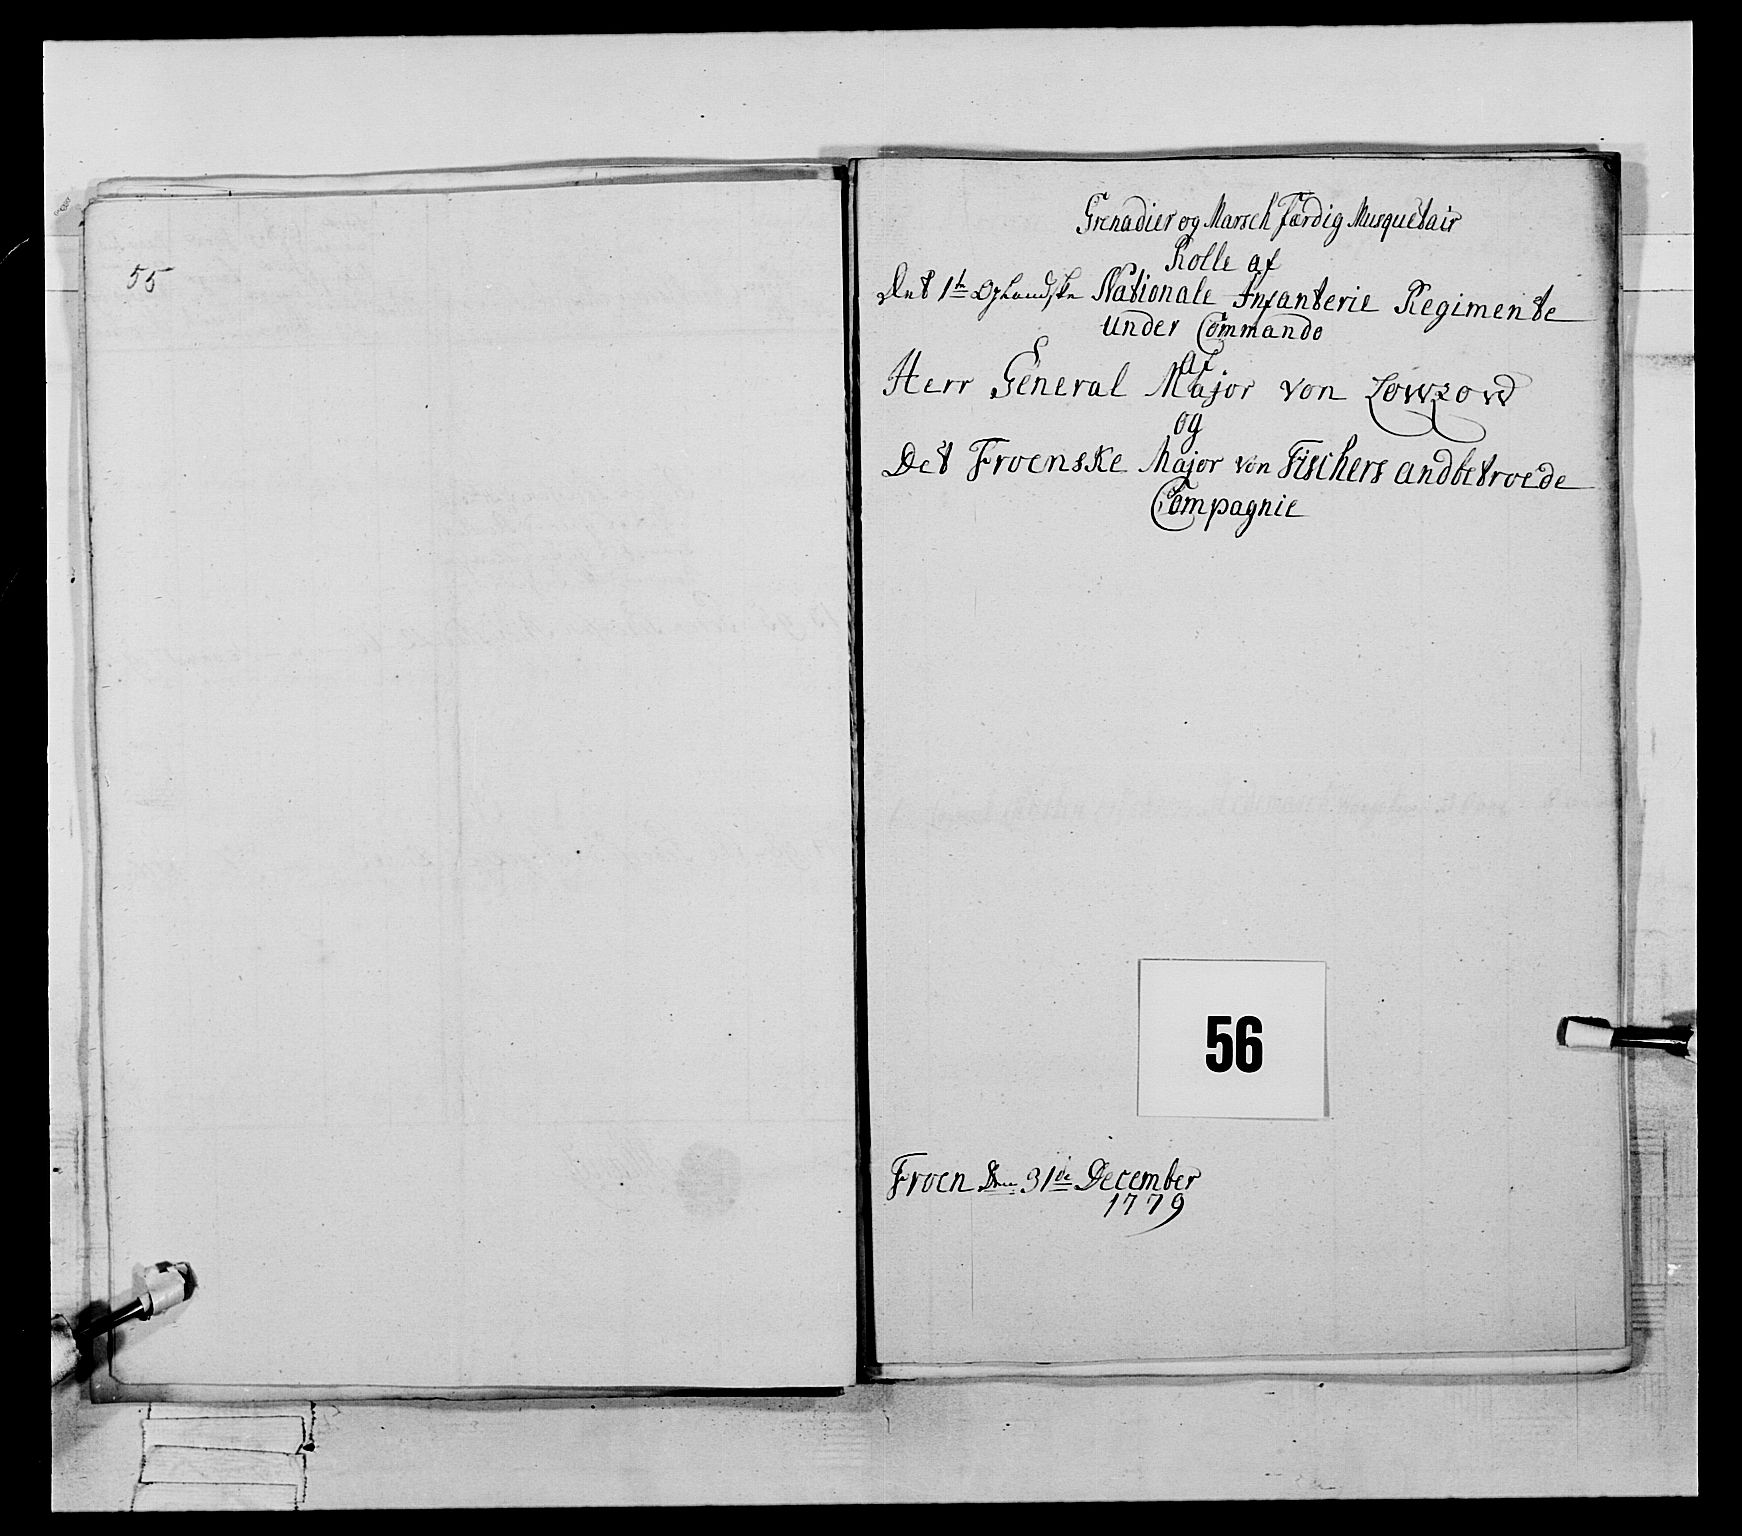 55
Grenadier og Marsch Færdig Musquetair
Rolle af
Det 1te Oplandske Nationale Infanterie Regimente
under Commando
af
Herr General Major von Lowzow
og
Det Froenske Major von Fischers andbetroede
Compagnie
56
Froen Den 31de December
1779